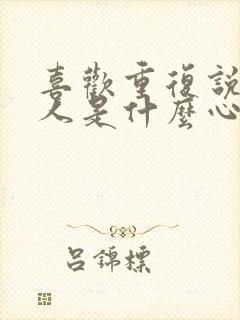 喜歡重復說
人是什麼心
呂錦標